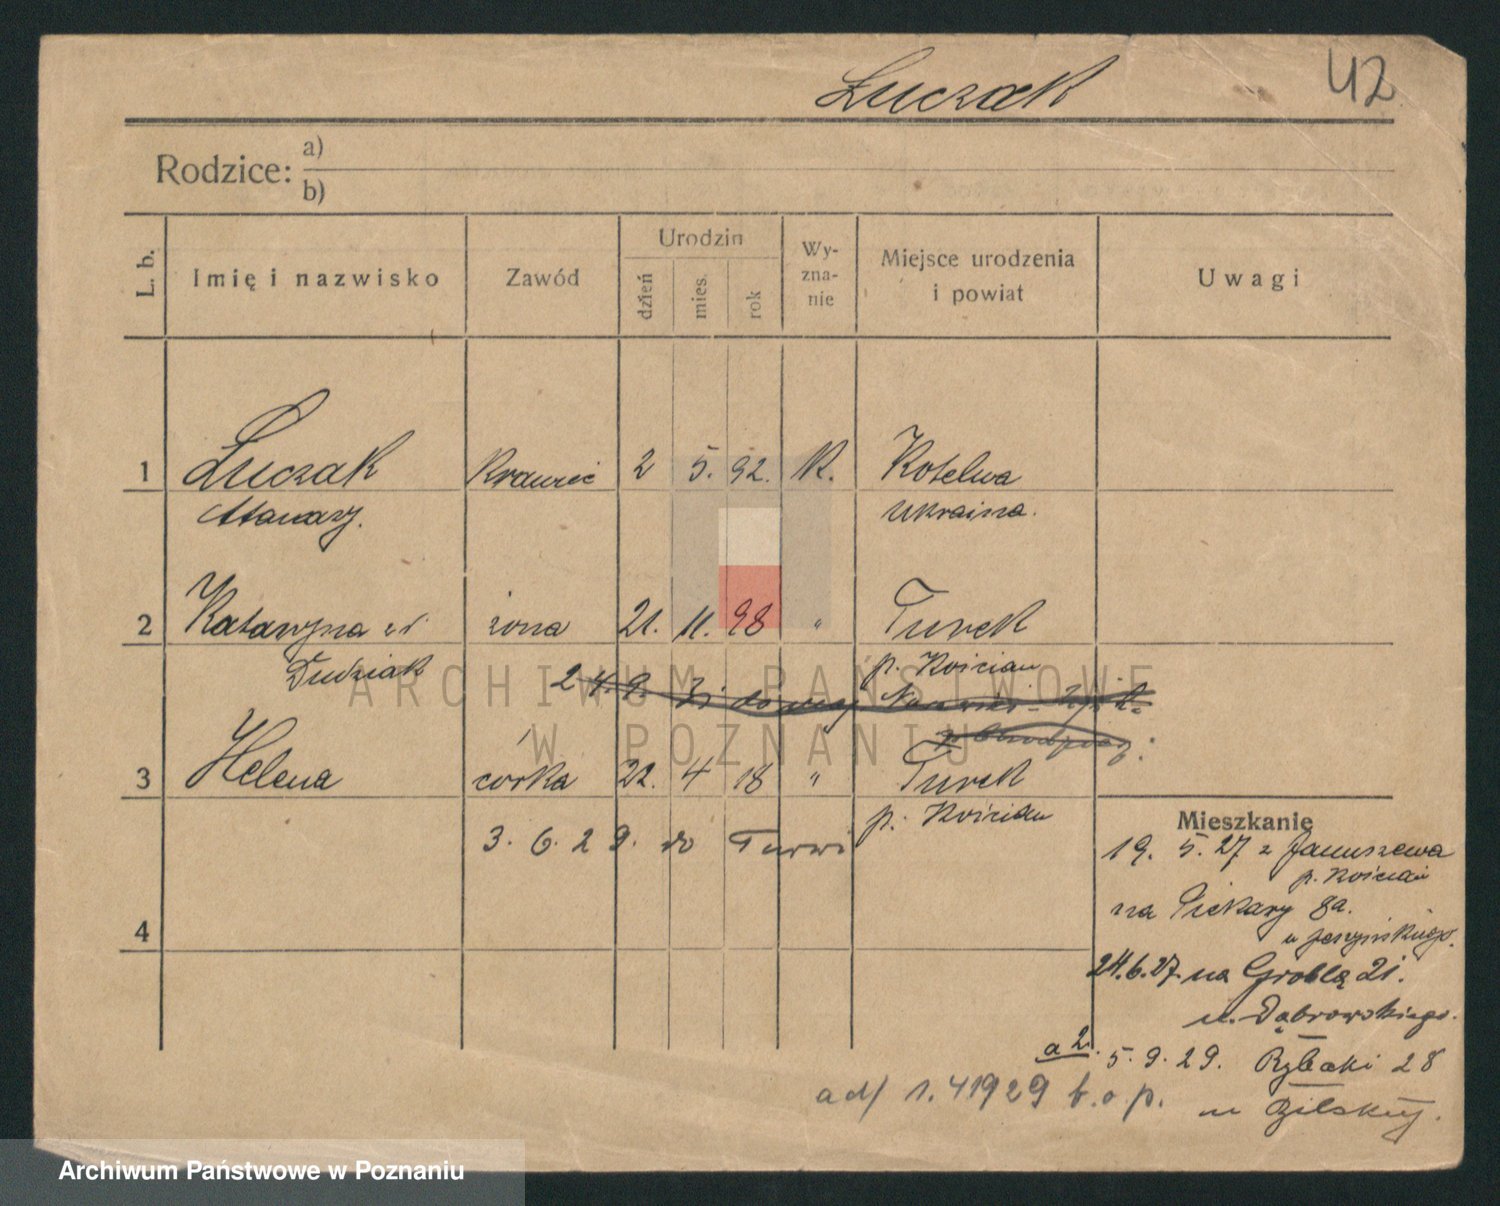 Łuczak 42
Rodzice: a)
b)
L. b. Imię i nazwisko Zawód Urodzin dzień mies. rok Wy-zna-nie Miejsce urodzenia i powiat Uwagi
1 Łuczak krawiec 2 5. 92. K. Kotelwa
Atanazy. Ukraina.
2 Katarzyna zd żona 21. 11. 98 " Turek
Dudziak p. Kościan
24.9.
3 Helena córka 22. 4 18 " Turek
p. Kościan
3. 6. 29. do Turwi
4
Mieszkanie
19. 5. 27 z Januszewa
p. Kościan
na Piekary 8a.
u
24.6.27 na Groblą 21.
u. Dąbrowskiego.
a 2. 5. 9. 29. Rybaki 28
u
ad/ 1. 41929 b. o p.
ARCHIWUM PAŃSTWOWE
W POZNANIU
Archiwum Państwowe w Poznaniu